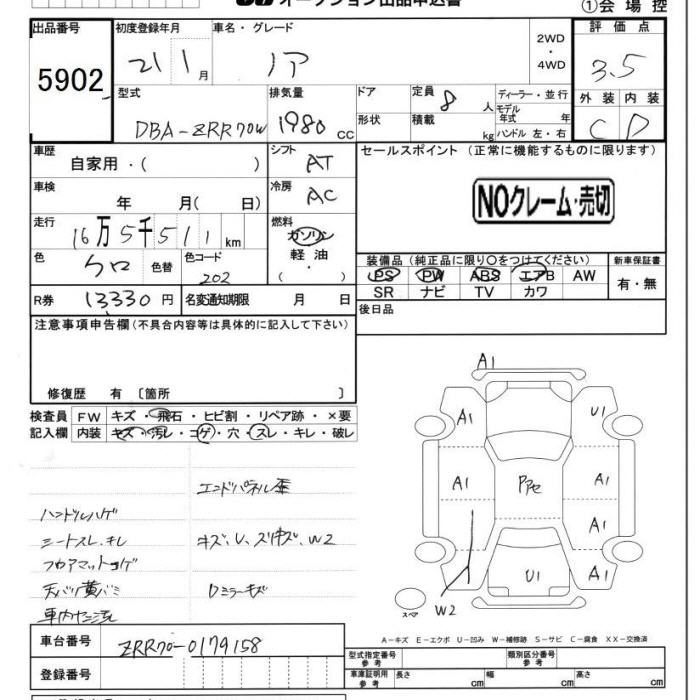 オークション出品申込書
①会場控
出品番号 初度登録年月 車名・グレード 2WD ・ 4WD 評価点
5902 21 1月 ノア 3.5
型式 排気量 ドア 定員 8人 ディーラー・並行
DBA-ZRR70W 1980cc 形状 積載 kg モデル年式 年 ハンドル 左・右
外装 内装
C D
車歴 自家用・( ) シフト AT セールスポイント (正常に機能するものに限ります)
車検 年 月( 日) 冷房 AC
NOクレーム・売切
走行 16万5千511km 燃料 ガソリン・軽油・( )
色 クロ 色替 色コード 202
装備品(純正品に限り〇をつけてください) 新車保証書
PS PW ABS エアB AW 有・無
SR ナビ TV カワ
R券 13330円 名変通知期限 月 日
後日品
注意事項申告欄(不具合内容等は具体的に記入して下さい)
修復歴 有〔箇所 〕
検査員 FW キズ・飛石・ヒビ割・リペア跡・×要
記入欄 内装 キズ・汚レ・コゲ・穴・スレ・キレ・破レ
エンドパネル歪
ハンドルハゲ
シートスレ.キレ キズ、U、スリキズ、W2
フロアマットコゲ
天バリ黄バミ Dミラーキズ
A1
A1 U1
A1 A1
A1
U1 A1
W2
スペア
A-キズ E-エクボ U-凹み W-補修跡 S-サビ C-腐食 XX-交換済
車台番号 ZRR70-0179158
型式指定番号 参考 類別区分番号 参考
登録番号 車庫証明用 参考 長さ cm 幅 cm 高さ cm